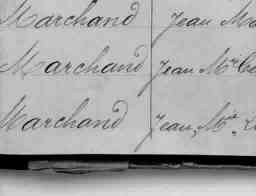 Marchand Jean Ma
Marchand Jean Mce
Marchand Jean, Mie